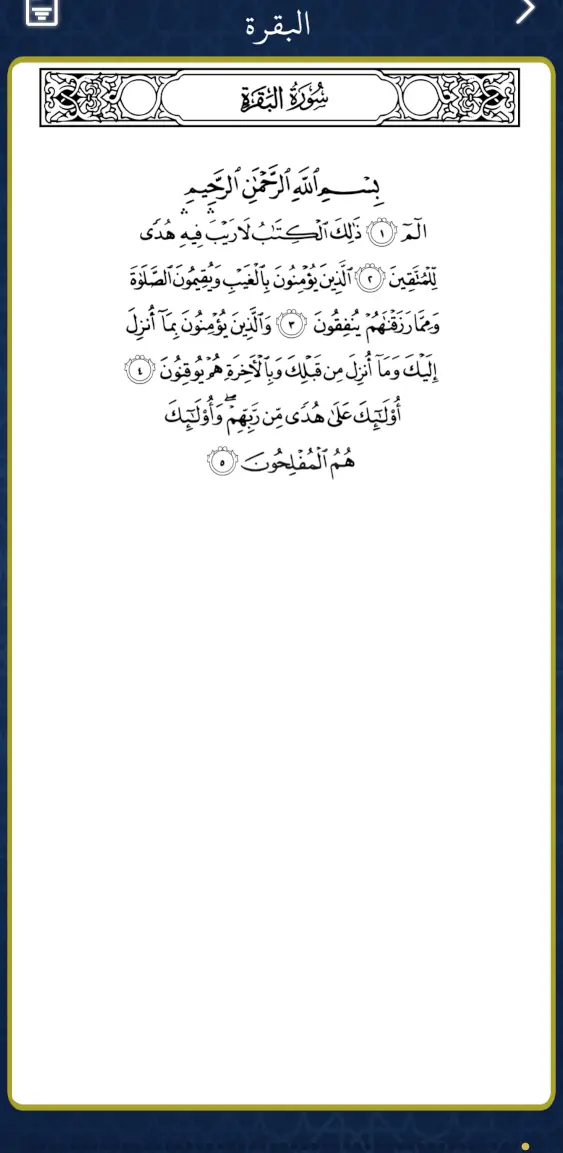 البقرة
سُورَةُ البَقَرَةِ
بِسۡمِ ٱللَّهِ ٱلرَّحۡمَٰنِ ٱلرَّحِيمِ
الٓمٓ ١ ذَٰلِكَ ٱلۡكِتَٰبُ لَا رَيۡبَۛ فِيهِۛ هُدٗى
لِّلۡمُتَّقِينَ ٢ ٱلَّذِينَ يُؤۡمِنُونَ بِٱلۡغَيۡبِ وَيُقِيمُونَ ٱلصَّلَوٰةَ
وَمِمَّا رَزَقۡنَٰهُمۡ يُنفِقُونَ ٣ وَٱلَّذِينَ يُؤۡمِنُونَ بِمَآ أُنزِلَ
إِلَيۡكَ وَمَآ أُنزِلَ مِن قَبۡلِكَ وَبِٱلۡأٓخِرَةِ هُمۡ يُوقِنُونَ ٤
أُوْلَٰٓئِكَ عَلَىٰ هُدٗى مِّن رَّبِّهِمۡۖ وَأُوْلَٰٓئِكَ
هُمُ ٱلۡمُفۡلِحُونَ ٥